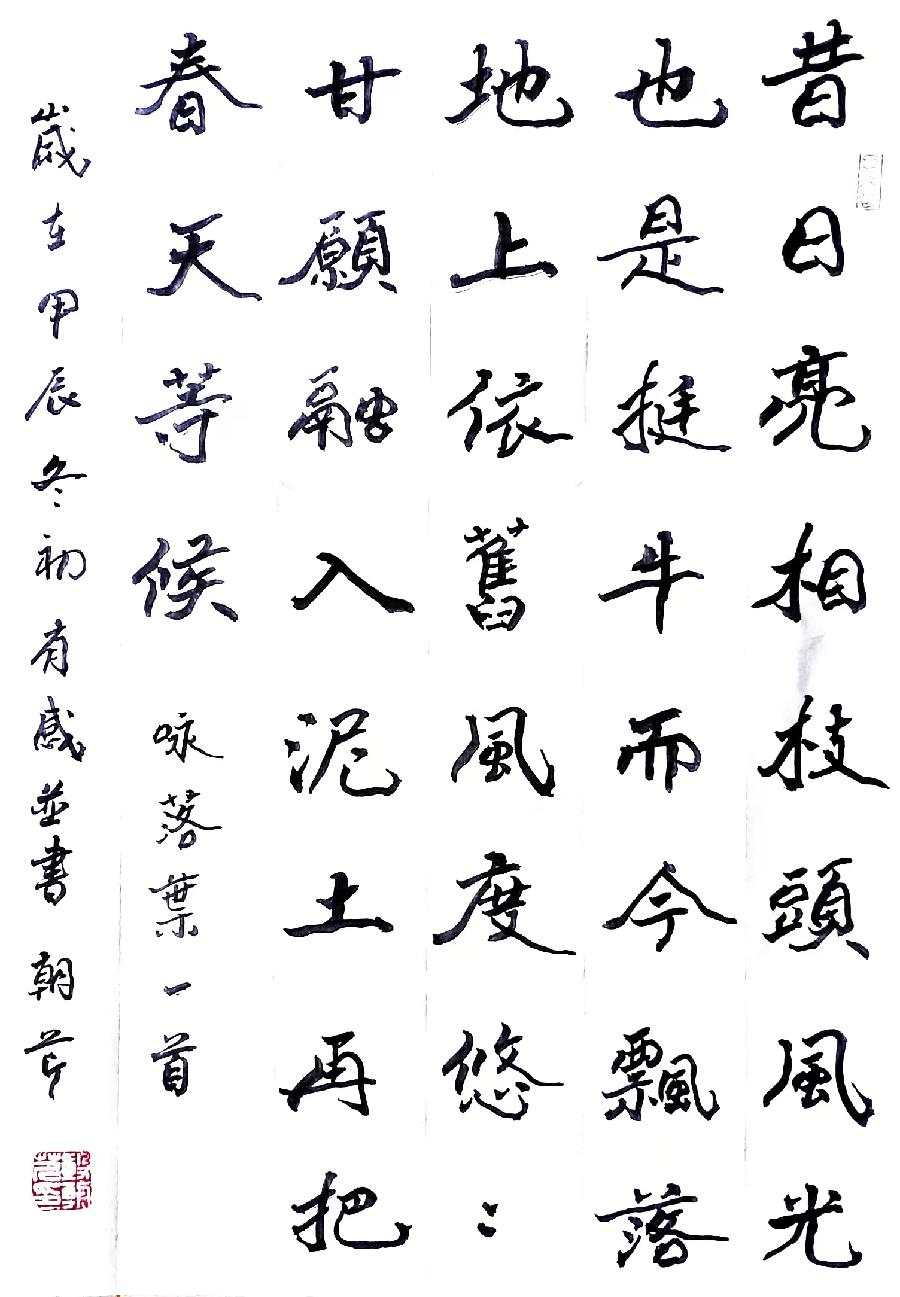 昔日亮相枝頭風光
也是挺牛而今飄落
地上依舊風度悠〻
甘願融入泥土再把
春天等候 咏落葉一首
歲在甲辰冬初有感並書 朝芹